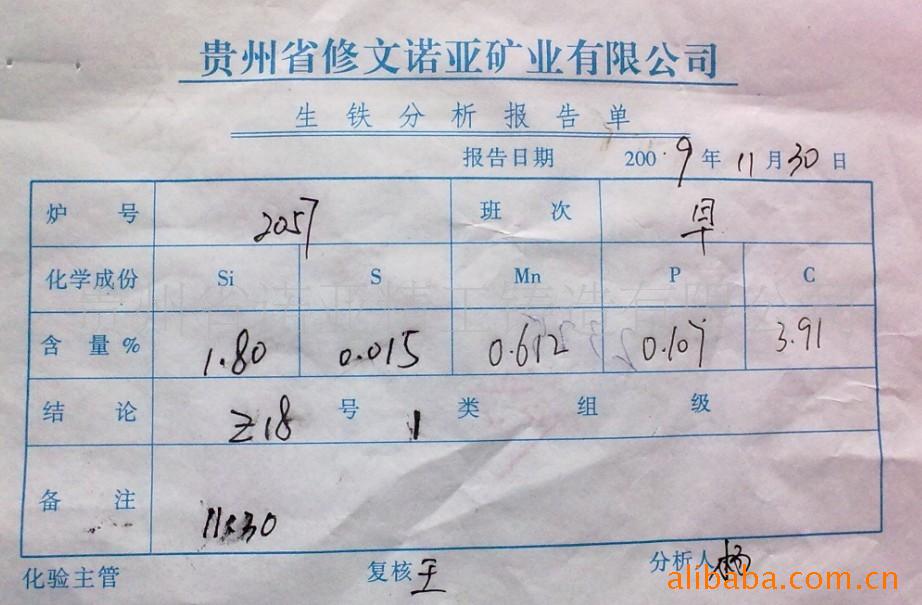 贵州省修文诺亚矿业有限公司
生铁分析报告单
报告日期 2009年11月30日
炉号 2057 班次 早
化学成份 Si S Mn P C
贵州省诺亚精工铸造有限公司
含量% 1.80 0.015 0.612 0.107 3.91
结论 Z18号 1类 组 级
备注
11x30
化验主管 复核 王 分析人 杨
alibaba.com.cn